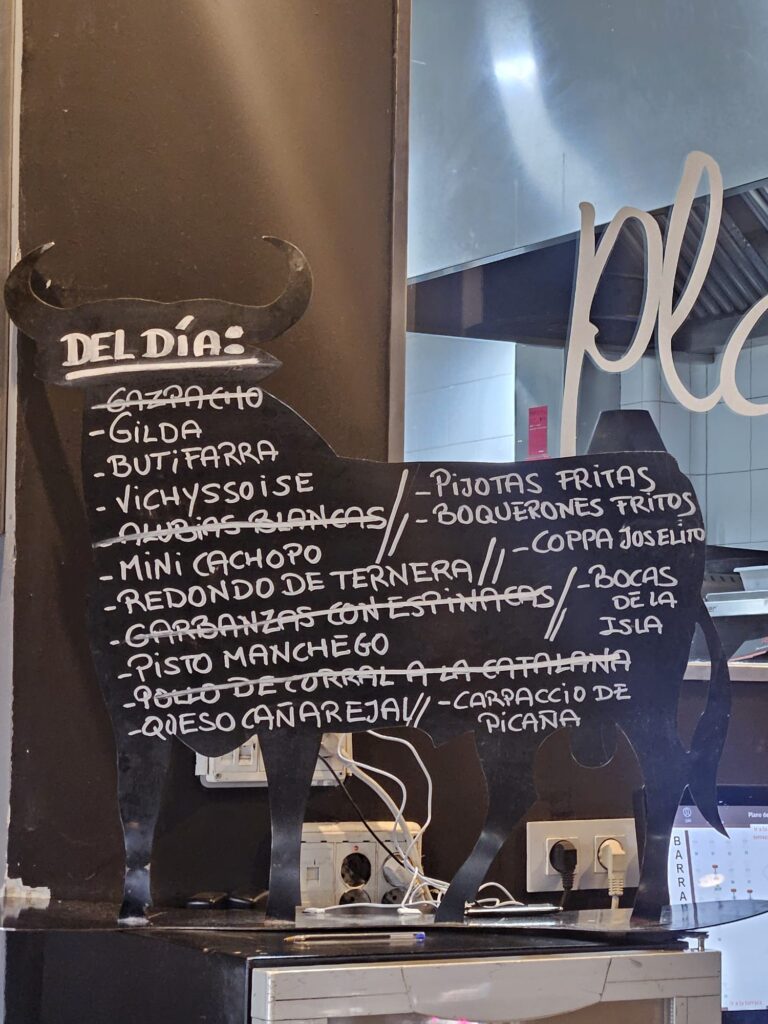 DEL DÍA:
-GAZPACHO
-GILDA
-BUTIFARRA
-VICHYSSOISE
-ALUBIAS BLANCAS
-MINI CACHOPO
-REDONDO DE TERNERA //
-GARBANZAS CON ESPINACAS
-PISTO MANCHEGO
-POLLO DE CORRAL A LA CATALANA
-QUESO CAÑAREJAL//
//
-PIJOTAS FRITAS
-BOQUERONES FRITOS
-COPPA JOSELITO
//
-BOCAS
DE LA
ISLA
-CARPACCIO DE
PICAÑA
pla
Plano de
BARRA
Ir a la terraza